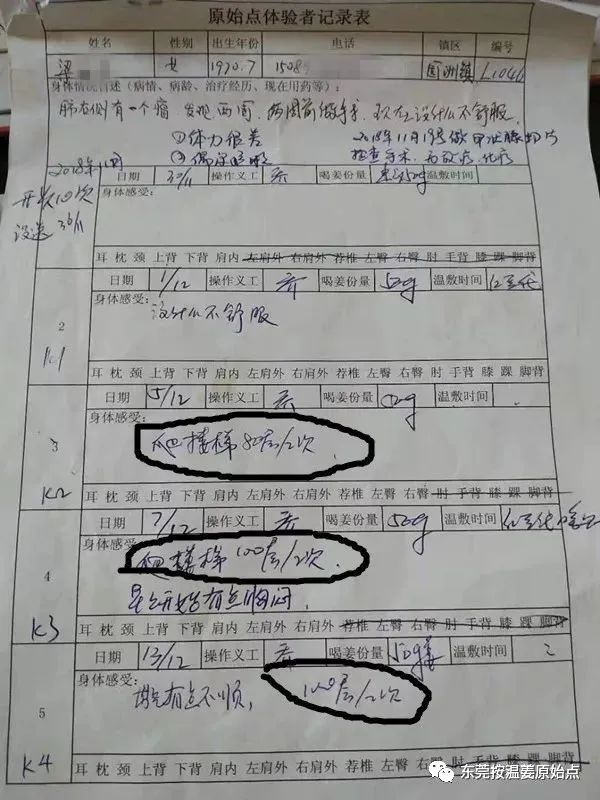 原始点体验者记录表
姓名 性别 出生年份 电话 镇区 编号
梁 女 1970.7 1508 L1046
身体情况自述（病情、病龄、治疗经历、现在用药等）：
肺右侧有一个瘤，发现两周，两周前做手术，现在没什么不舒服。
①体力很差 2018年11月19号做甲状腺切片
② 检查手术，无放疗、化疗
2018年11月
日期 30/11 操作义工 喝姜份量 50g 温敷时间
身体感受：
耳 枕 颈 上背 下背 肩内 左肩外 右肩外 荐椎 左臀 右臀 肘 手背 膝 踝 脚背
日期 1/12 操作义工 喝姜份量 50g 温敷时间
身体感受：
没什么不舒服
2
K1
耳 枕 颈 上背 下背 肩内 左肩外 右肩外 荐椎 左臀 右臀 肘 手背 膝 踝 脚背
日期 5/12 操作义工 喝姜份量 50g 温敷时间
身体感受：
爬楼梯80层/2次
3
K2
耳 枕 颈 上背 下背 肩内 左肩外 右肩外 荐椎 左臀 右臀 肘 手背 膝 踝 脚背
日期 7/12 操作义工 喝姜份量 50g 温敷时间
身体感受：
爬楼梯100层/2次
4
晚上开始有点胸闷，
K3
耳 枕 颈 上背 下背 肩内 左肩外 右肩外 荐椎 左臀 右臀 肘 手背 膝 踝 脚背
日期 13/12 操作义工 喝姜份量 50g 温敷时间
身体感受：
有点不顺， 100层/2次
5
K4
耳 枕 颈 上背 下背 肩内 左肩外 右肩外 荐椎 左臀 右臀 肘 手背 膝 踝 脚背
东莞按温姜原始点